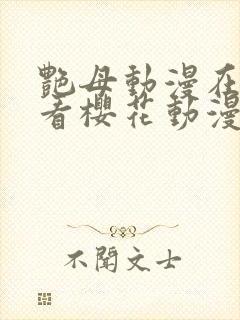 艷母動漫在
看櫻花動漫
不聞文士